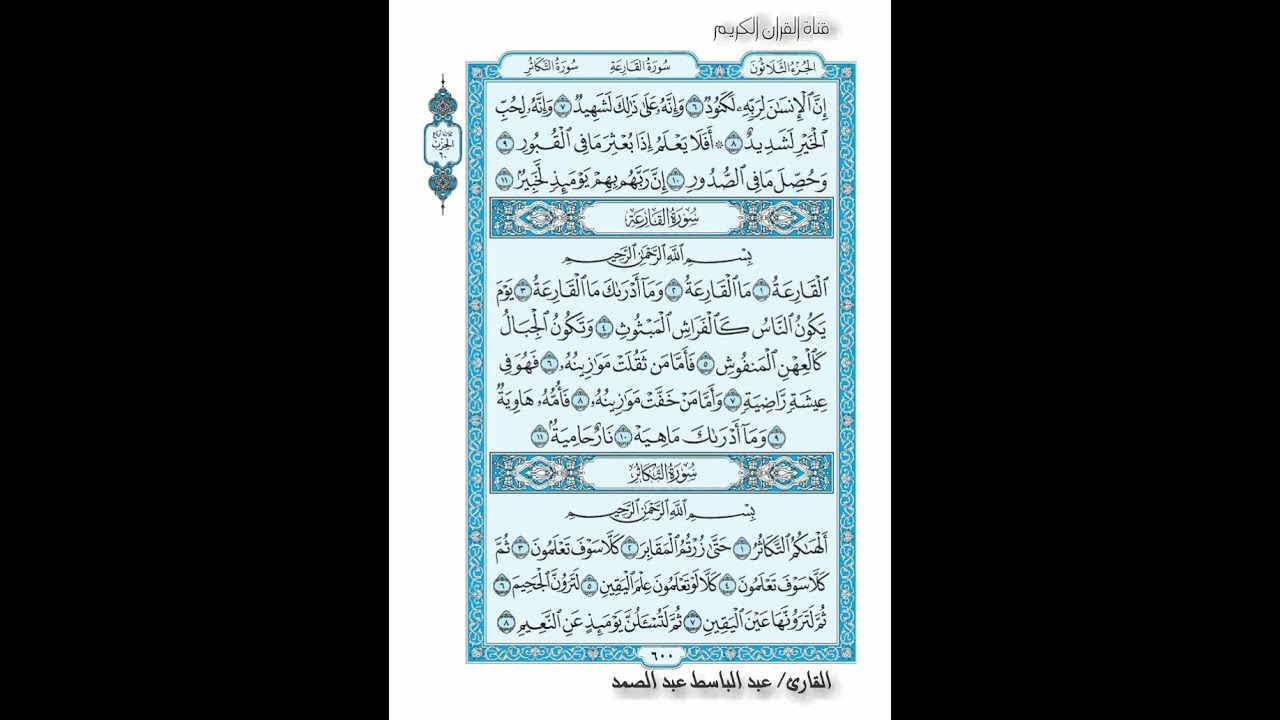 قناة القران الكريم
الجزء الثلاثون
سورة القارعة
سورة التكاثر
إِنَّ ٱلْإِنسَٰنَ لِرَبِّهِۦ لَكَنُودٌ ٦ وَإِنَّهُۥ عَلَىٰ ذَٰلِكَ لَشَهِيدٌ ٧ وَإِنَّهُۥ لِحُبِّ
ٱلْخَيْرِ لَشَدِيدٌ ٨ ۞ أَفَلَا يَعْلَمُ إِذَا بُعْثِرَ مَا فِى ٱلْقُبُورِ ٩
وَحُصِّلَ مَا فِى ٱلصُّدُورِ ١٠ إِنَّ رَبَّهُم بِهِمْ يَوْمَئِذٍ لَّخَبِيرٌۢ ١١
ثلاثة أرباع
الحزب
٦٠
سُورَةُ القَارِعَةِ
بِسْمِ ٱللَّهِ ٱلرَّحْمَٰنِ ٱلرَّحِيمِ
ٱلْقَارِعَةُ ١ مَا ٱلْقَارِعَةُ ٢ وَمَآ أَدْرَىٰكَ مَا ٱلْقَارِعَةُ ٣ يَوْمَ
يَكُونُ ٱلنَّاسُ كَٱلْفَرَاشِ ٱلْمَبْثُوثِ ٤ وَتَكُونُ ٱلْجِبَالُ
كَٱلْعِهْنِ ٱلْمَنفُوشِ ٥ فَأَمَّا مَن ثَقُلَتْ مَوَٰزِينُهُۥ ٦ فَهُوَ فِى
عِيشَةٍ رَّاضِيَةٍ ٧ وَأَمَّا مَنْ خَفَّتْ مَوَٰزِينُهُۥ ٨ فَأُمُّهُۥ هَاوِيَةٌ
٩ وَمَآ أَدْرَىٰكَ مَا هِيَهْ ١٠ نَارٌ حَامِيَةٌۢ ١١
سُورَةُ التَّكَاثُرِ
بِسْمِ ٱللَّهِ ٱلرَّحْمَٰنِ ٱلرَّحِيمِ
أَلْهَىٰكُمُ ٱلتَّكَاثُرُ ١ حَتَّىٰ زُرْتُمُ ٱلْمَقَابِرَ ٢ كَلَّا سَوْفَ تَعْلَمُونَ ٣ ثُمَّ
كَلَّا سَوْفَ تَعْلَمُونَ ٤ كَلَّا لَوْ تَعْلَمُونَ عِلْمَ ٱلْيَقِينِ ٥ لَتَرَوُنَّ ٱلْجَحِيمَ ٦
ثُمَّ لَتَرَوُنَّهَا عَيْنَ ٱلْيَقِينِ ٧ ثُمَّ لَتُسْـَٔلُنَّ يَوْمَئِذٍ عَنِ ٱلنَّعِيمِ ٨
٦٠٠
القارئ/ عبد الباسط عبد الصمد